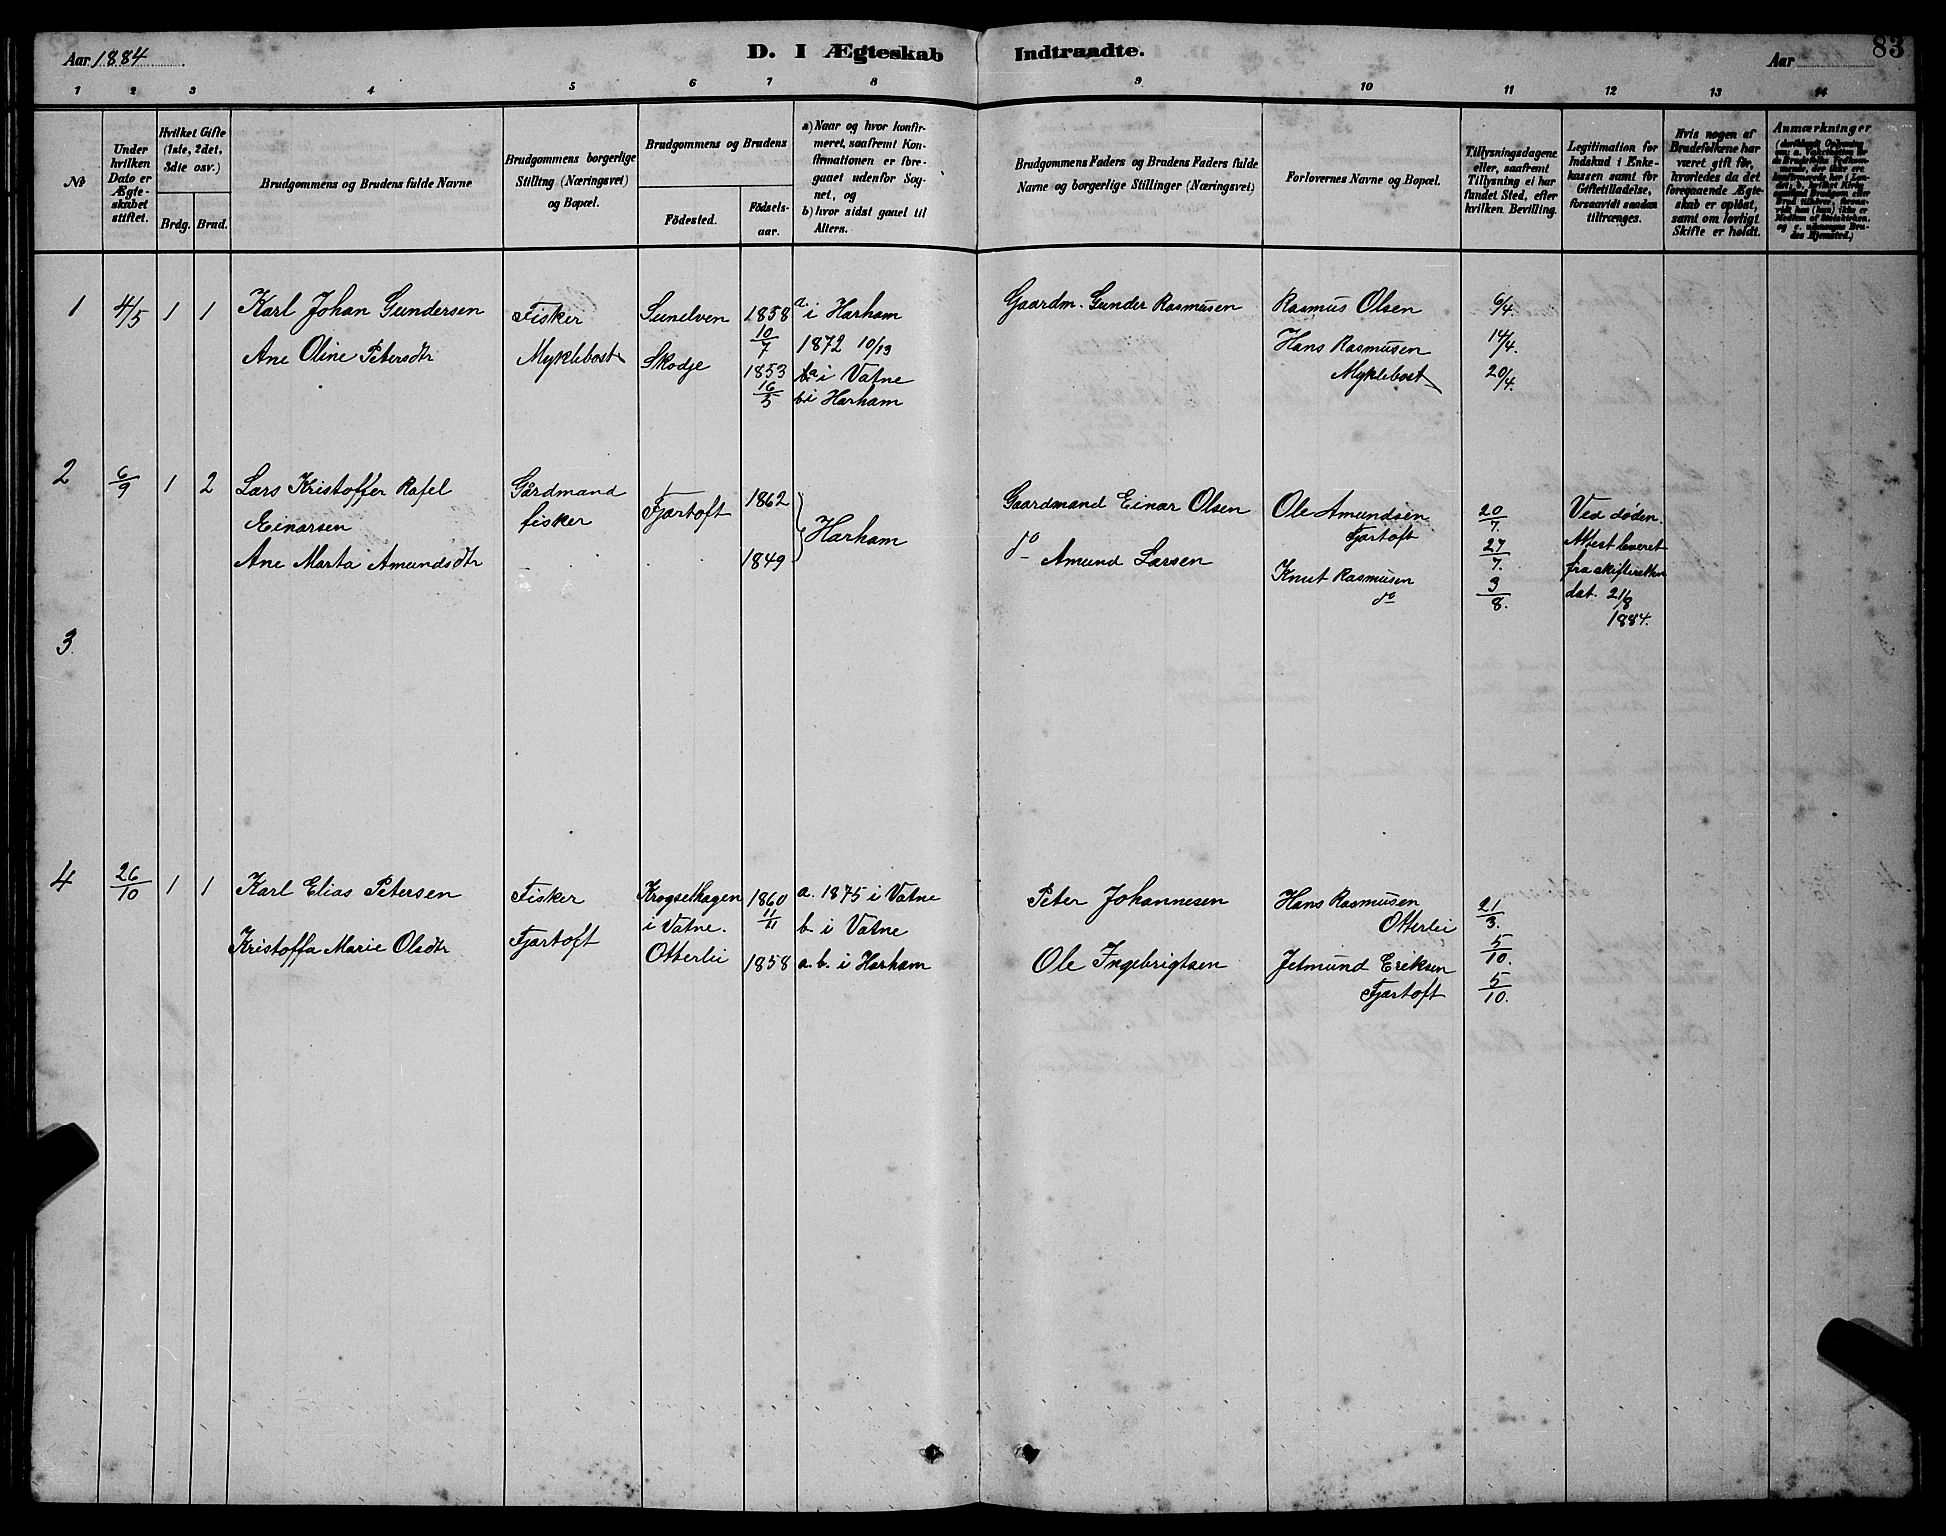 Aar 1884
D. I Ægteskab Indtraadte.
Aar
83
1 2 3 4 5 6 7 8 9 10 11 12 13 14
No
Under hvilken Dato er Ægteskabet stiftet.
Hvilket Gifte (1ste, 2det, 3die osv.)
Brdg. Brud.
Brudgommens og Brudens fulde Navne
Brudgommens borgerlige Stilling (Næringsvei) og Bopæl.
Brudgommens og Brudens
Födested.
Födsels-aar.
a) Naar og hvor konfirmeret, saafremt Konfirmationen er foregaaet udenfor Sognet, og
b) hvor sidst gaaet til Alters.
Brudgommens Faders og Brudens Faders fulde Navne og borgerlige Stillinger (Næringsvei)
Forlovernes Navne og Bopæl.
Tillysningsdagene eller, saafremt Tillysning ei har fundet Sted, efter hvilken Bevilling.
Legitimation for Indskud i Enkekassen samt for Giftetilladelse, forsaavidt saadan tiltrænges.
Hvis nogen af Brudefolkene har været gift för, hvorledes da det foregaaende Ægteskab er oplöst, samt om lovligt Skifte er holdt.
Anmærkninger
1 4/5 1 1
Karl Johan Gundersen
Ane Oline Petersdtr
Fisker
Myklebost
Sunelven
Skodje
1858
10/7
1853
16/5
a. i Harham
1872 10/13
a i Vatne
b i Harham
Gaardm. Gunder Rasmusen
Rasmus Olsen
Hans Rasmusen
Myklebost
6/4
14/4.
20/4.
2 6/9 1 2
Lars Kristoffer Rafel
Einarsen
Ane Marta Amundsdtr
Gårdmand
fisker
Fjartoft
1862
1849
Harham
Gaardmand Einar Olsen
do Amund Larsen
Ole Amundsen
Fjartoft
Knut Rasmusen
do
20/7.
27/7.
3/8.
Ved döden.
Attest leveret
fra skifteretten
dat. 21/8
1884.
3
4 26/10 1 1
Karl Elias Petersen
Kristoffa Marie Olsdtr
Fisker
Fjartoft
Krogsethagen
i Vatne.
Otterlei
1860
11/11
1858
a. 1875 i Vatne
b. i Vatne
a. b. i Harham
Peter Johannesen
Ole Ingebrigtsen
Hans Rasmusen
Otterlei
Jetmund Eriksen
Fjartoft
21/3.
5/10.
5/10.